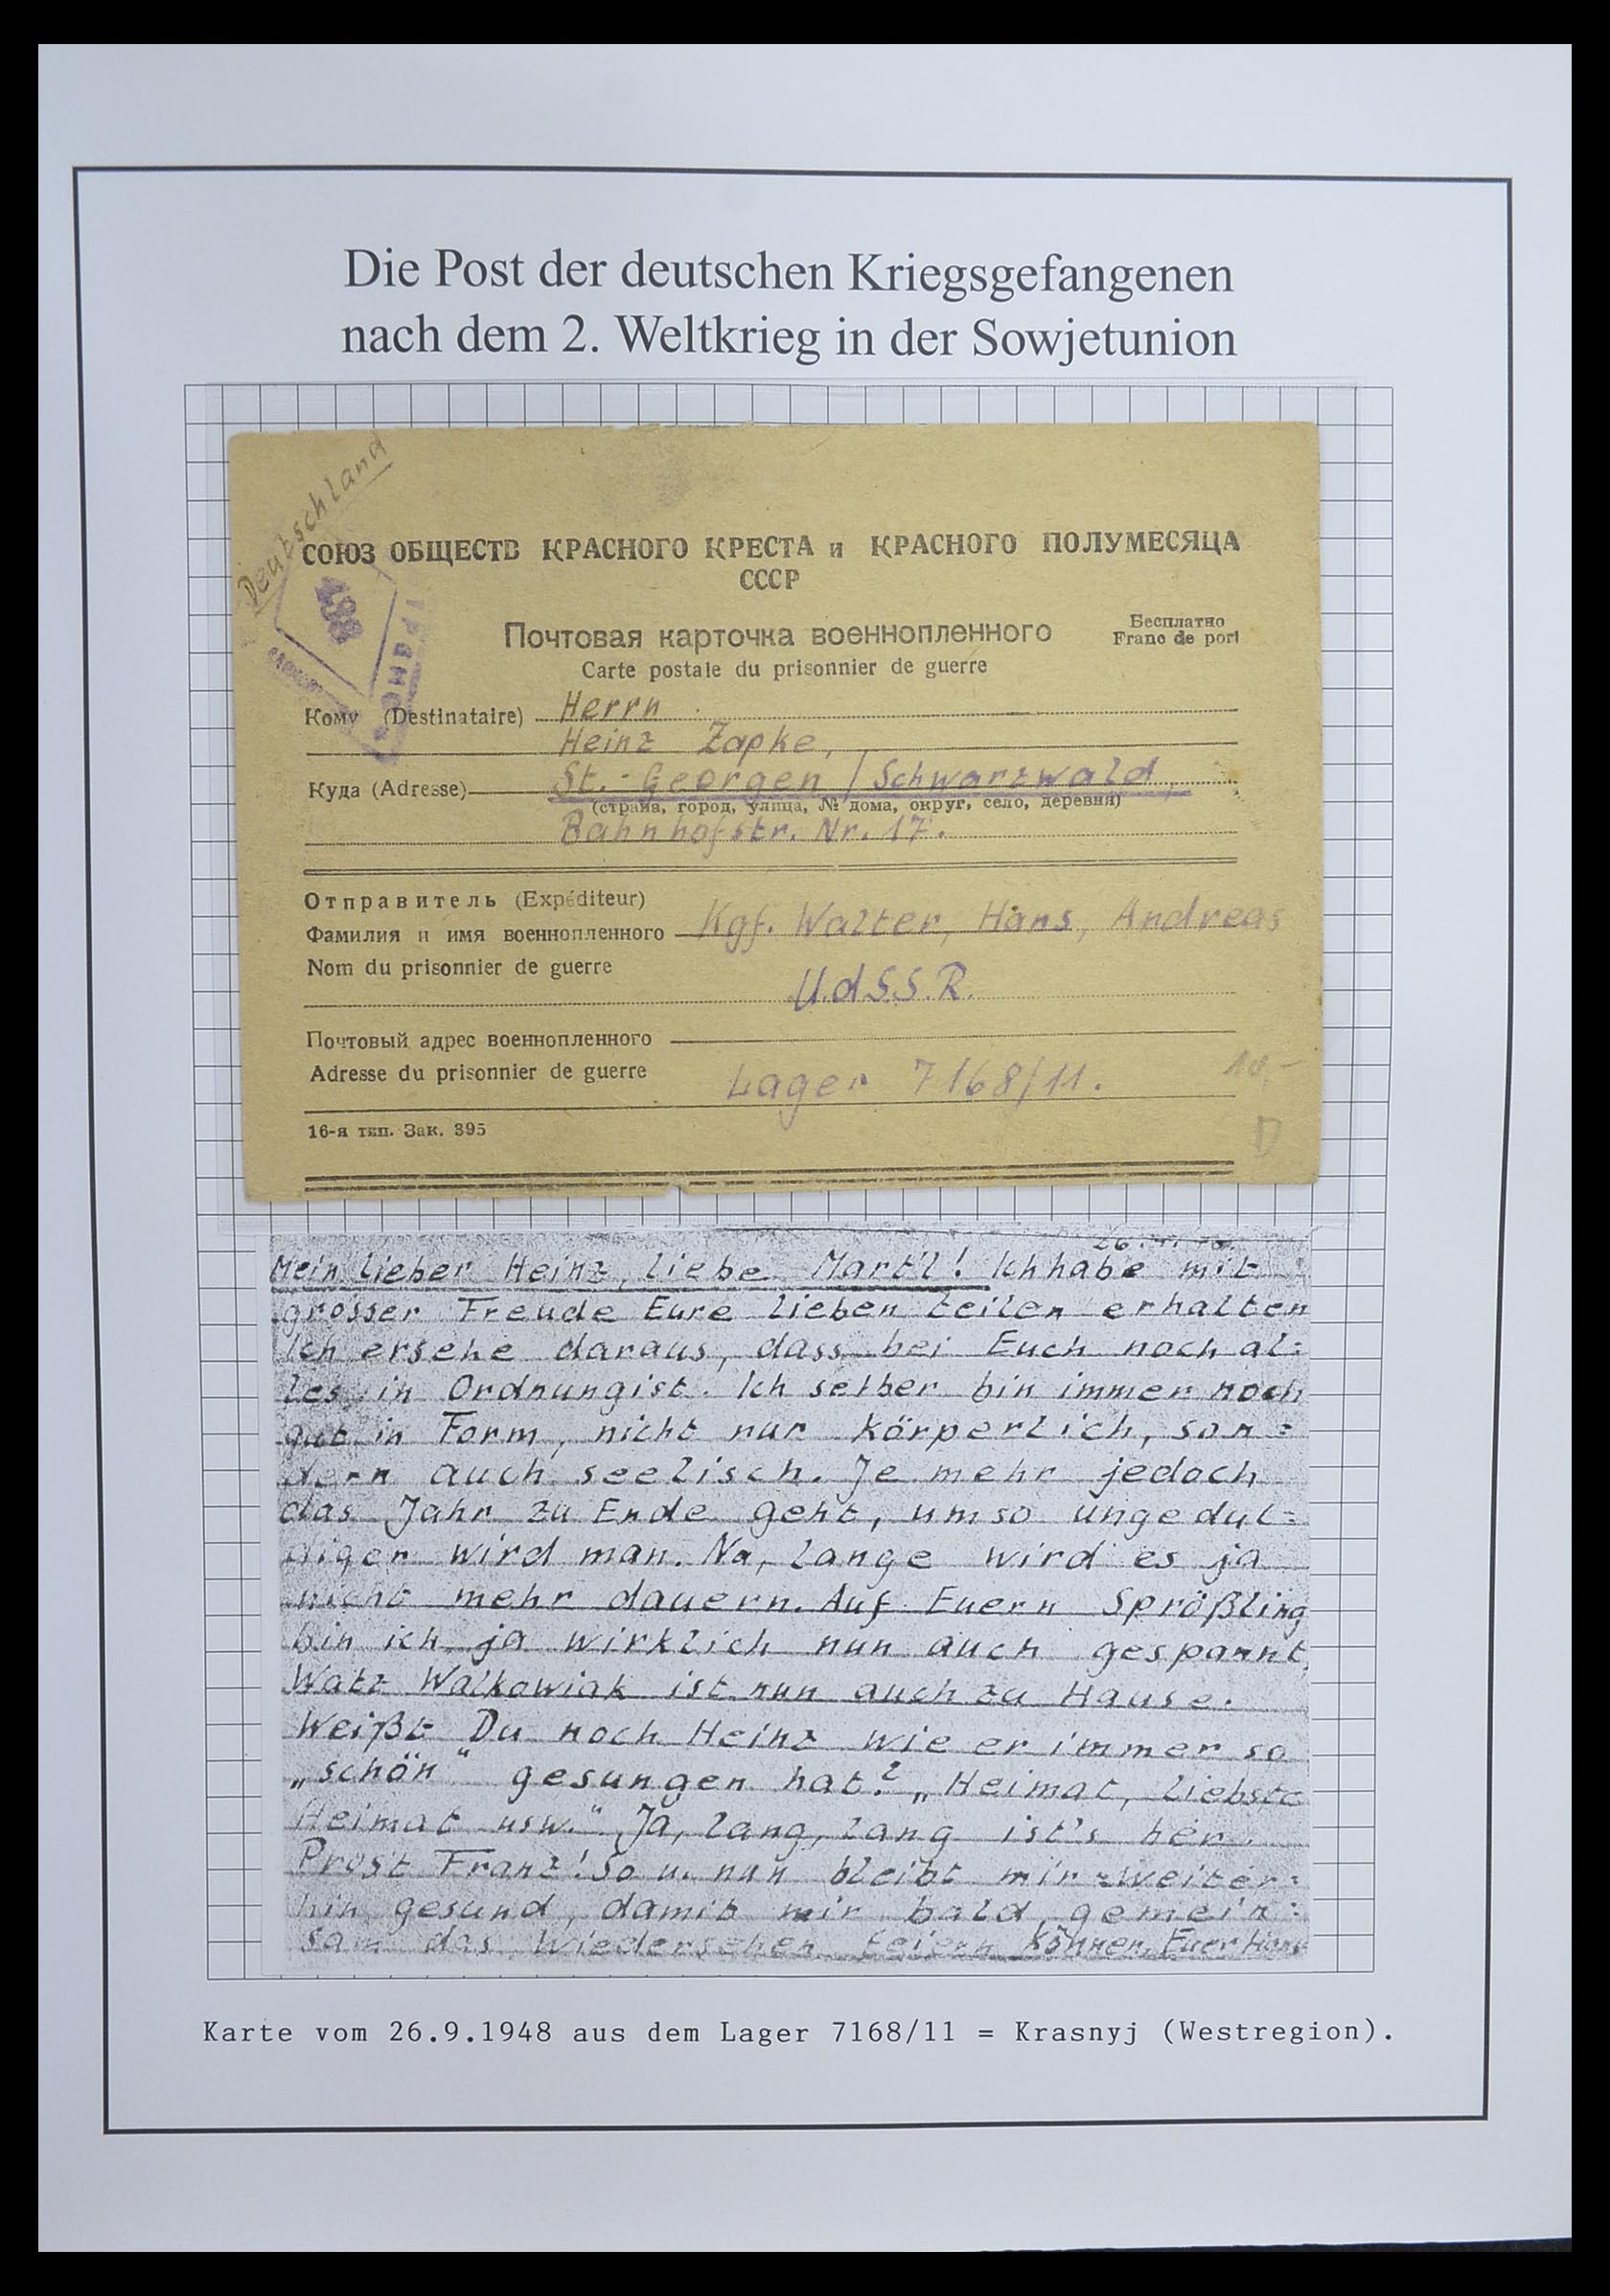 Die Post der deutschen Kriegsgefangenen
nach dem 2. Weltkrieg in der Sowjetunion
Deutschland
СОЮЗ ОБЩЕСТВ КРАСНОГО КРЕСТА и КРАСНОГО ПОЛУМЕСЯЦА
СССР
Почтовая карточка военнопленного
Бесплатно
Franc de port
Carte postale du prisonnier de guerre
Кому (Destinataire) Herrn
Heinz Zapke,
Куда (Adresse) St.-Georgen / Schwarzwald,
(страна, город, улица, № дома, округ, село, деревня)
Bahnhofstr. Nr. 17.
Отправитель (Expéditeur)
Фамилия и имя военнопленного Kgf. Walter, Hans, Andreas
Nom du prisonnier de guerre
U.d.S.S.R.
Почтовый адрес военнопленного
Adresse du prisonnier de guerre Lager 7168/11.
10,-
D
16-я тип. Зак. 395
Mein lieber Heinz, liebe Mart'l! Ich habe mit
grosser Freude Eure lieben Zeilen erhalten
Ich ersehe daraus, dass bei Euch noch al=
les in Ordnung ist. Ich selber bin immer noch
gut in Form, nicht nur körperlich, son=
dern auch seelisch. Je mehr jedoch
das Jahr zu Ende geht, umso ungedul=
diger wird man. Na, lange wird es ja
nicht mehr dauern. Auf Euern Sprößling
bin ich ja wirklich nun auch gespannt.
Watz Walkowiak ist nun auch zu Hause.
Weißt Du noch Heinz wie er immer so
„schön" gesungen hat? „Heimat, liebste
Heimat usw.". Ja, lang, lang ist's her.
Prost Franz! So u. nun bleibt mir weiter=
hin gesund, damit wir bald gemein=
sam das Wiedersehen feiern können. Euer Hans
Karte vom 26.9.1948 aus dem Lager 7168/11 = Krasnyj (Westregion).